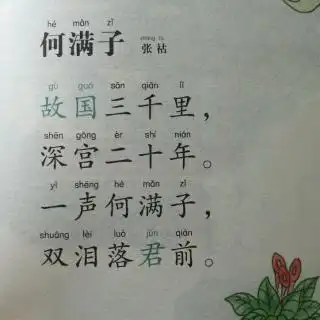 hé mǎn zǐ
何满子 张祜
gù guó sān qiān lǐ
故国三千里，
shēn gōng èr shí nián
深宫二十年。
yì shēng hé mǎn zǐ
一声何满子，
shuāng lèi luò jūn qián
双泪落君前。